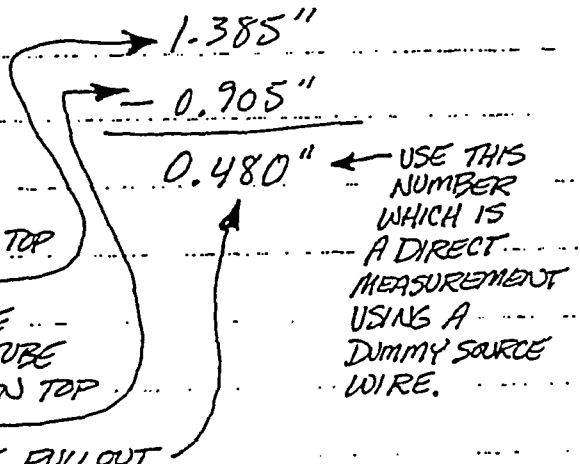 1.385"
- 0.905"
0.480"
USE THIS
NUMBER
WHICH IS
A DIRECT
MEASUREMENT
USING A
DUMMY SOURCE
WIRE.
TOP
TOP